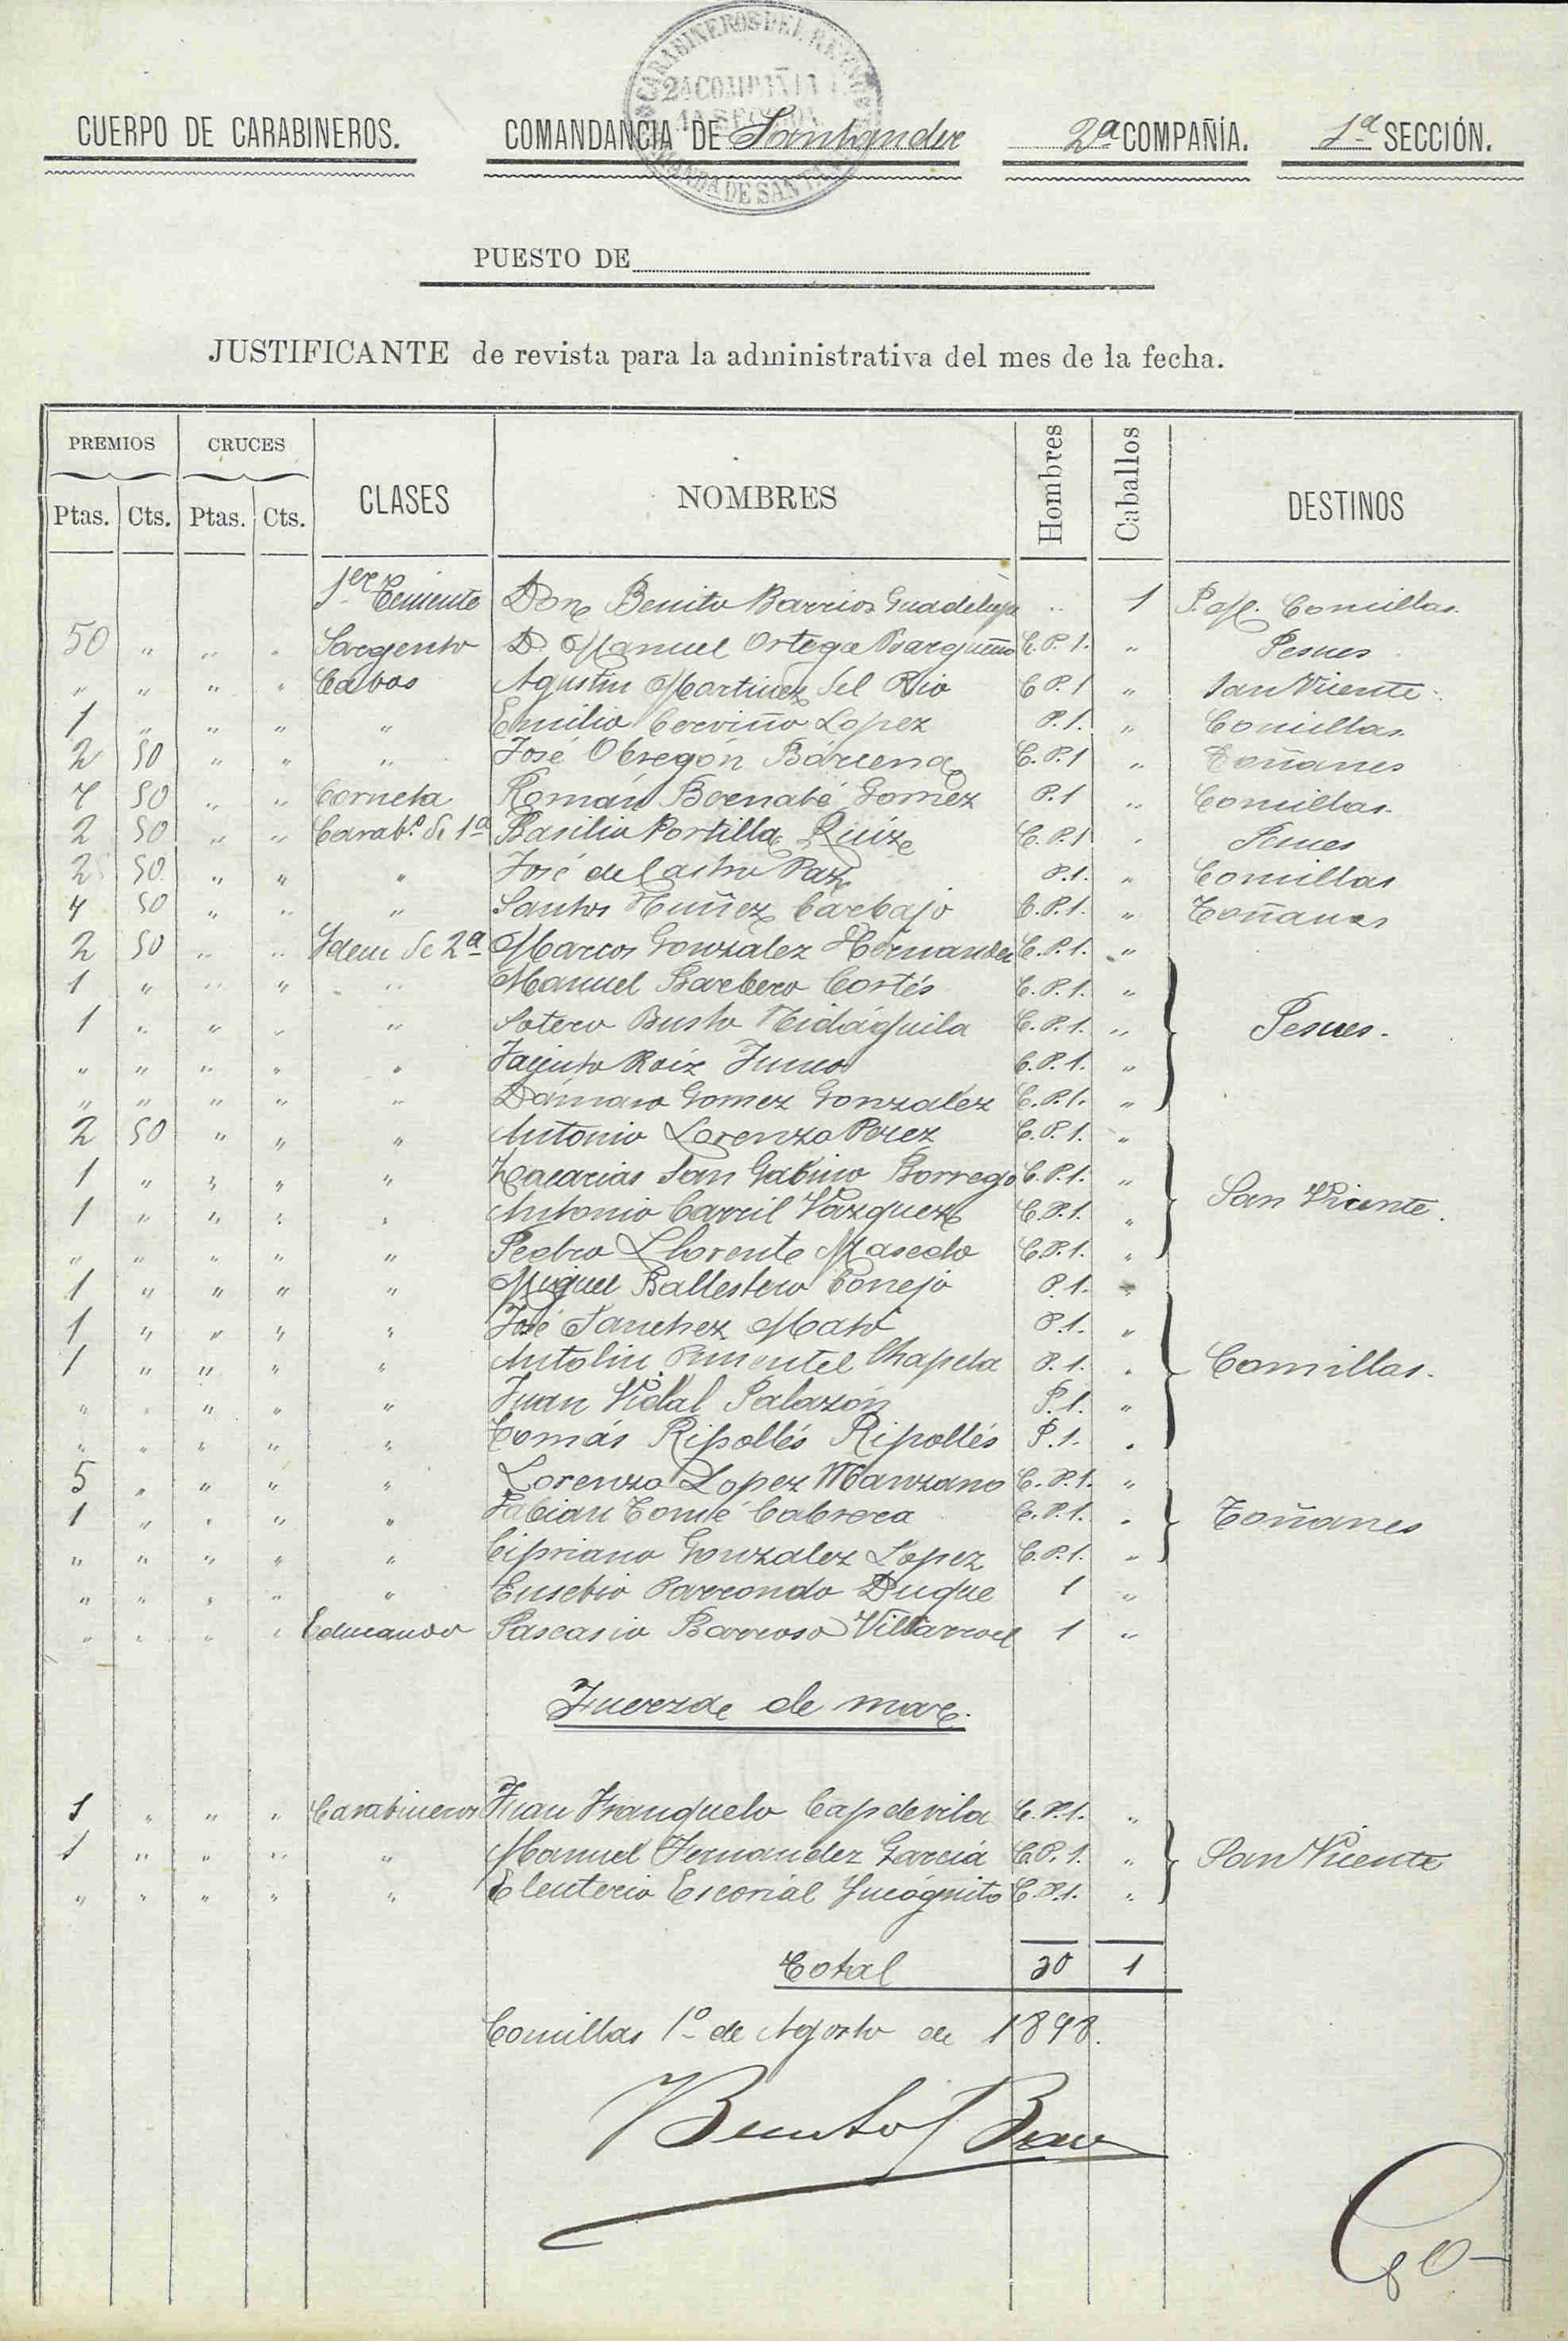 CARABINEROS DEL REYNO
2A COMPAÑIA
1A SECCION
COMANDA DE SANTA
CUERPO DE CARABINEROS. COMANDANCIA DE Santander 2ª COMPAÑÍA. 1ª SECCIÓN.
PUESTO DE
JUSTIFICANTE de revista para la administrativa del mes de la fecha.
PREMIOS CRUCES CLASES NOMBRES Hombres Caballos DESTINOS
Ptas. Cts. Ptas. Cts.
1er Teniente Don Benito Barrios Guadelupe " 1 Comillas.
50 " " " Sargento D. Manuel Ortega Bargueño C.P.1. " Pesues
" " " " Cabos Agustin Martinez del Rio C.P.1 " San Vicente.
1 " " " " Emilio Cerviño Lopez P.1. " Comillas.
2 50 " " " José Obregón Bárcena C.P.1 " Toñanes
7 50 " " Corneta Román Bernabé Gomez P.1 " Comillas.
2 50 " " Carab.º de 1ª Basilio Portilla Ruiz C.P.1 " Pesues
2 50 " " " José de Castro Paz P.1. " Comillas
4 50 " " " Santos Nuñez Carbajo C.P.1. " Toñanes
2 50 " " Idem de 2ª Marcos Gonzalez Hernandez C.P.1. "
1 " " " " Manuel Barbero Cortés C.P.1. "
1 " " " " Sotero Busto Nidáguila C.P.1. " Pesues.
" " " " " Jacinto Roiz Junco C.P.1. "
" " " " " Dámaso Gomez Gonzalez C.P.1. "
2 50 " " " Antonio Lorenzo Perez C.P.1. "
1 " " " " Zacarias San Gabino Borrego C.P.1. "
1 " " " " Antonio Carril Vázquez C.P.1. " San Vicente.
" " " " " Pedro Llorente Masedo C.P.1. "
1 " " " " Miguel Ballestero Conejo P.1. "
1 " " " " José Sanchez Mató P.1. "
1 " " " " Antolin Pimentel Chapela P.1. " Comillas.
" " " " " Juan Vidal Palazón P.1. "
" " " " " Tomás Ripollés Ripollés P.1. "
5 " " " " Lorenzo Lopez Manzano C.P.1. "
1 " " " " Fabian Tomé Cabrera C.P.1. " Toñanes
" " " " " Cipriano Gonzalez Lopez C.P.1. "
" " " " " Eusebio Parrondo Duque 1 "
" " " " Educando Pascasio Barroso Villarroel 1 "
Fuerza de mar.
1 " " " Carabineros Juan Franquelo Capdevila C.P.1. "
1 " " " " Manuel Fernandez García C.P.1. " San Vicente
" " " " " Eleuterio Escorial Yncógnito C.P.1. "
Total 30 1
Comillas 1º de Agosto de 1898.
Benito Barrios